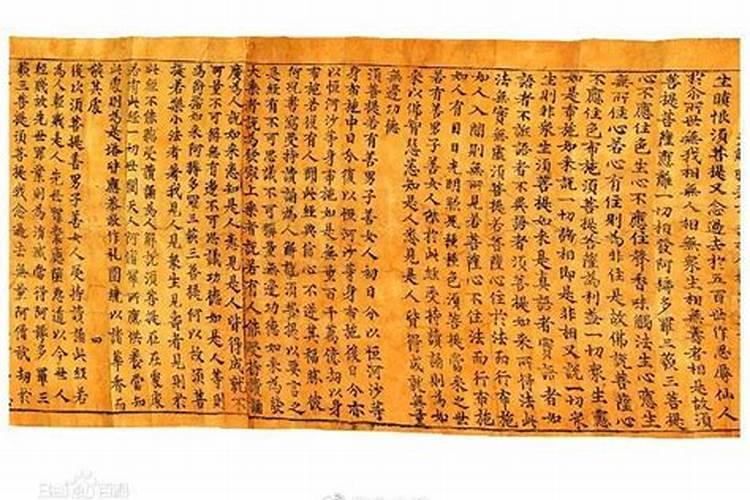 生瞋恨須菩提又念過去於五百世作忍辱仙人
於尒所世無我相無人相無衆生相無壽者相是故須
菩提菩薩應離一切相發阿耨多羅三藐三菩提
心不應住色生心不應住聲香味觸法生心應生
無所住心若心有住則為非住是故佛說菩薩心
不應住色布施須菩提菩薩為利益一切衆生應
如是布施如來說一切諸相即是非相又說一切衆
生則非衆生須菩提如來是真語者實語者如
語者不誑語者不異語者須菩提如來所得法此
法無實無虛須菩提若菩薩心住於法而行布施
如人入闇則無所見若菩薩心不住法而行布施
如人有目日光明照見種種色須菩提當來之世
若有善男子善女人能於此經受持讀誦則為如
來以佛智慧悉知是人悉見是人皆得成就無量
無邊功德
須菩提若有善男子善女人初日分以恒河沙等
身布施中日分復以恒河沙等身布施後日分亦
以恒河沙等身布施如是無量百千萬億劫以身
布施若復有人聞此經典信心不逆其福勝彼
何況書寫受持讀誦為人解說須菩提以要言之
是經有不可思議不可稱量無邊功德如來為發
大乘者說為發最上乘者說若有人能受持讀誦
廣為人說如來悉知是人悉見是人皆得成就不
可量不可稱無有邊不可思議功德如是人等則
為荷擔如來阿耨多羅三藐三菩提何以故須菩
提若樂小法者著我見人見衆生見壽者見則於
此經不能聽受讀誦為人解說須菩提在在處處
若有此經一切世間天人阿脩羅所應供養當知
此處則為是塔皆應恭敬作禮圍繞以諸華香而
散其處 四
復次須菩提善男子善女人受持讀誦此經若
為人輕賤是人先世罪業應墮惡道以今世人
輕賤故先世罪業則為消滅當得阿耨多羅三
藐三菩提須菩提我念過去無量阿僧祇劫於
Baidu百科